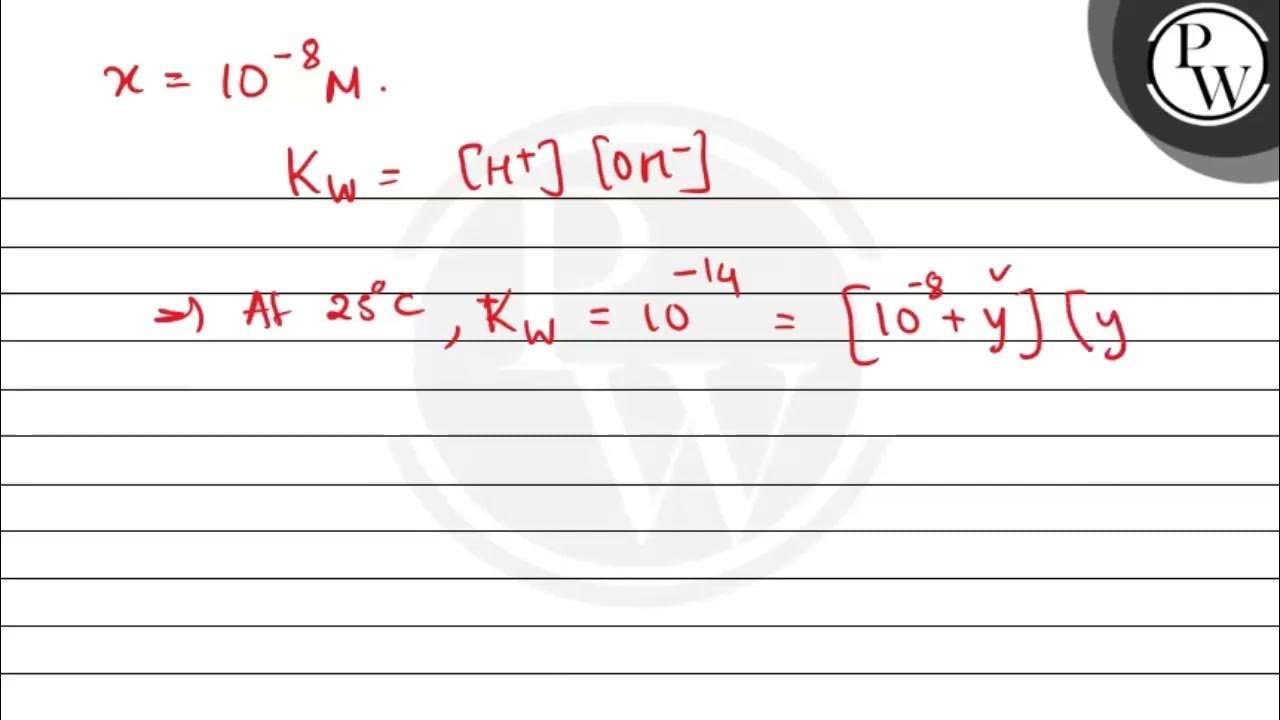 PW
x = 10⁻⁸ M.
K_W = [H⁺] [OH⁻]
⇒ At 25°C, K_W = 10⁻¹⁴ = [10⁻⁸ + y] [y
PW